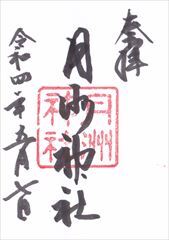 奉拝
月洲神社
月洲神社
令和四年五月七日